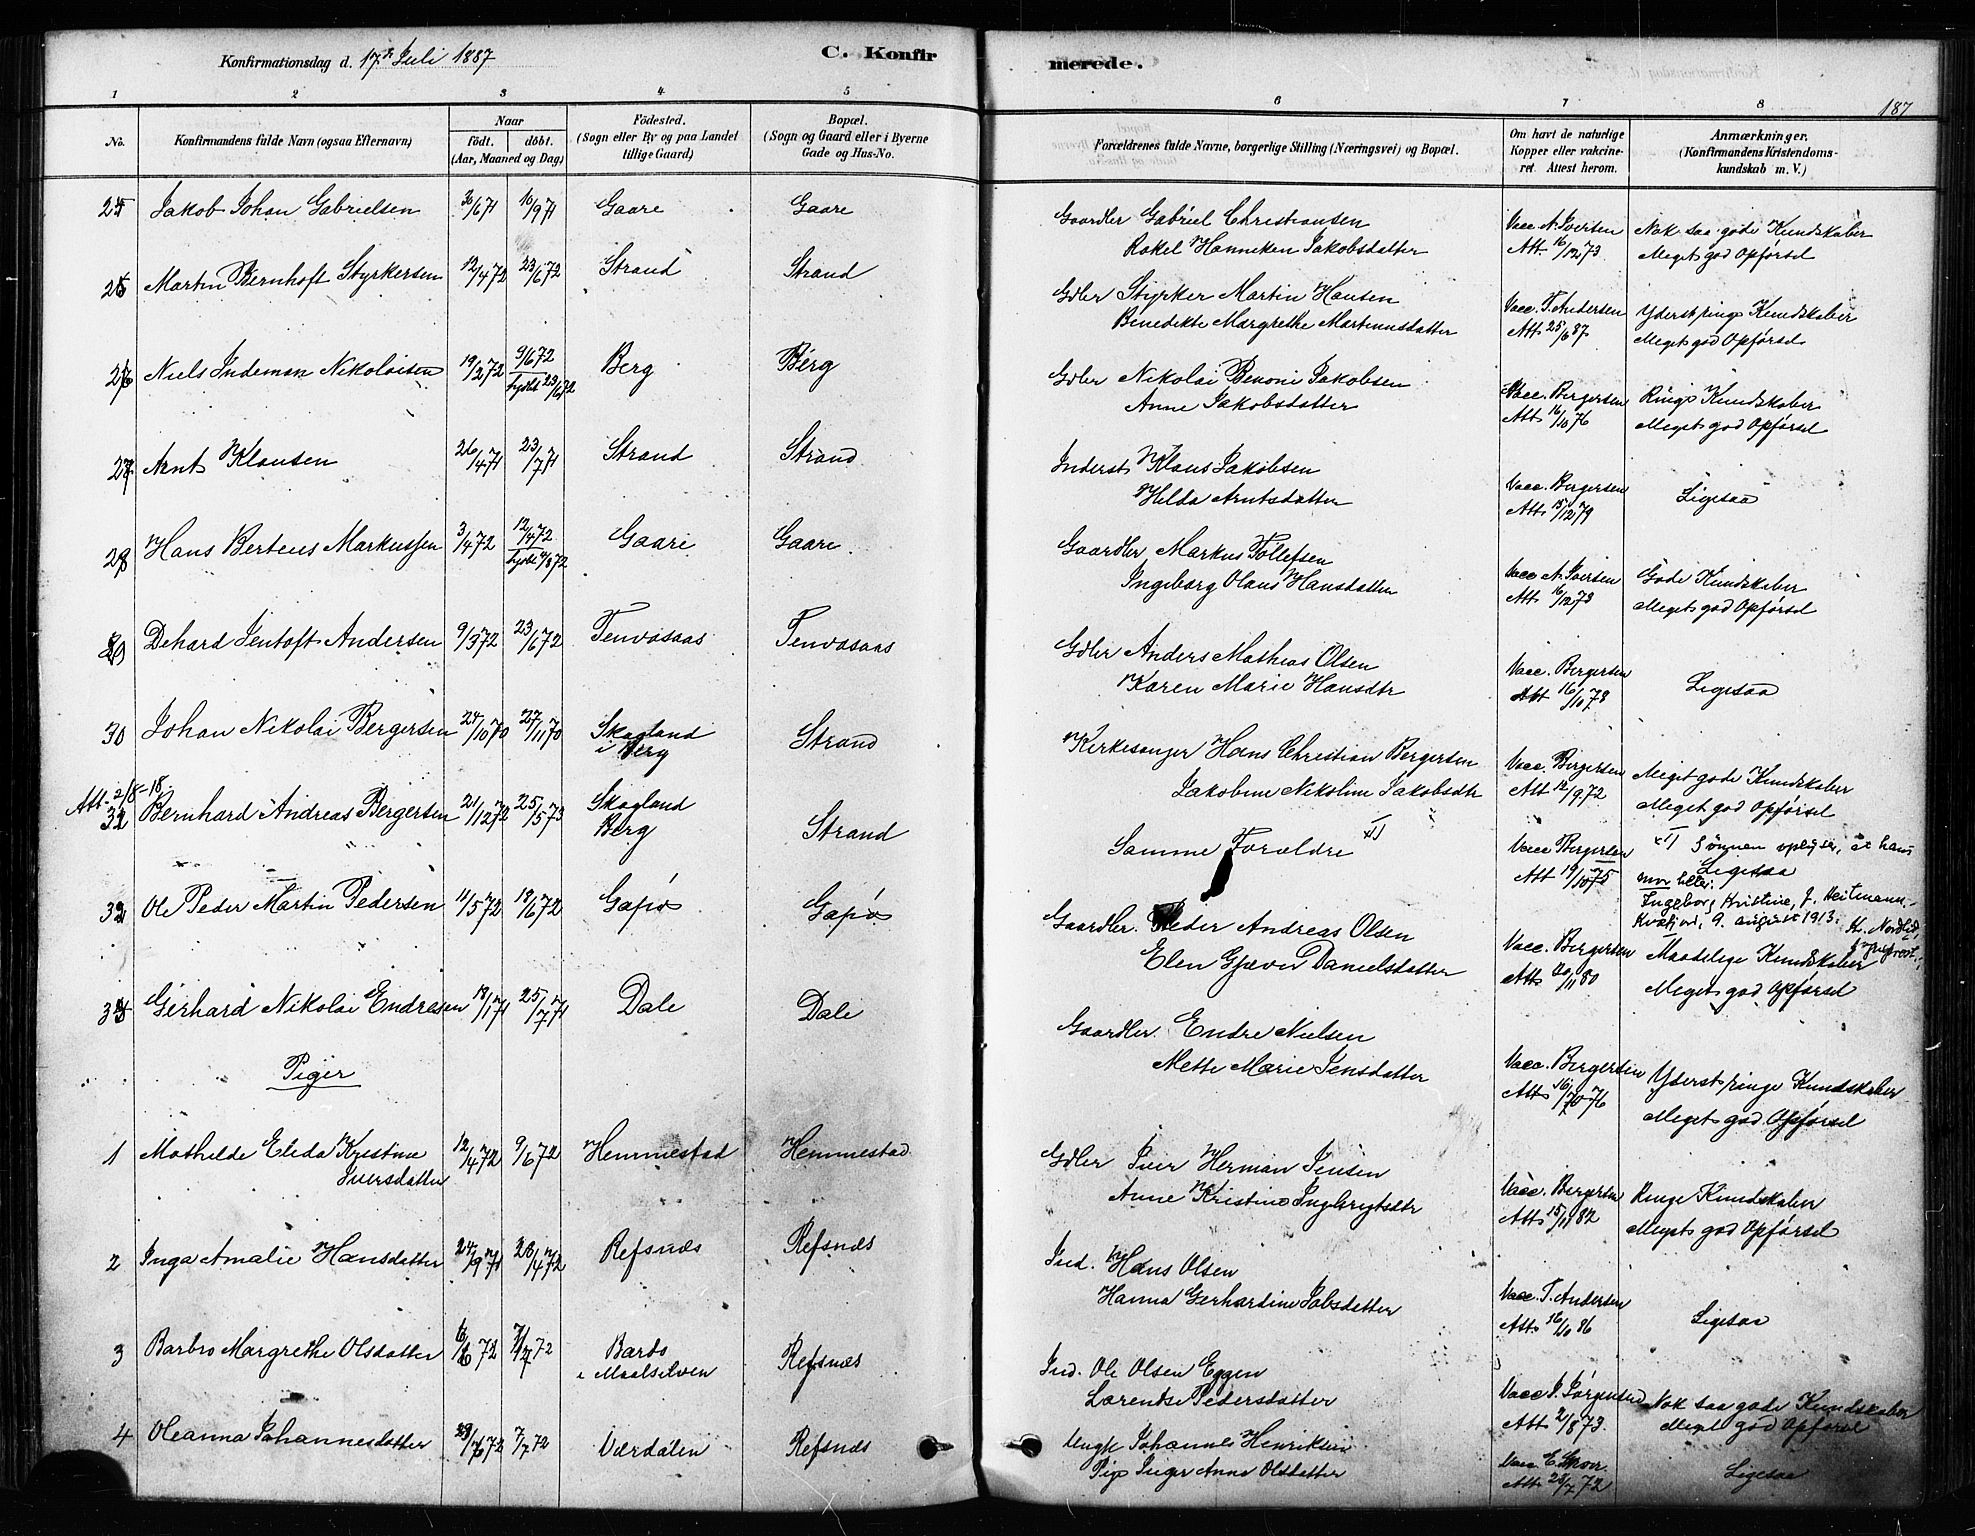 Konfirmationsdag d. 17de Juli 1887
C. Konfir
merede.
187
1 2 3 4 5 6 7 8
No.
Konfirmandens fulde Navn (ogsaa Efternavn)
Naar
födt. döbt.
(Aar, Maaned og Dag)
Födested.
(Sogn eller By og paa Landet
tillige Gaard)
Bopæl.
(Sogn og Gaard eller i Byerne
Gade og Hus-No.
Forældrenes fulde Navne, borgerlige Stilling (Næringsvei) og Bopæl.
Om havt de naturlige
Kopper eller vakcine-
ret. Attest herom.
Anmærkninger.
(Konfirmandens Kristendoms-
kundskab m. V.)
Jakob Johan Gabrielsen 30/6 71 10/9 71 Gaare Gaare
Gaardbr Gabriel Christiansen
Rakel Hanniken Jakobsdatter
Vacc. N. Iversen
Att. 16/12 73
Nok saa gode Kundskaber
Meget god Opførsel
Martin Bernhoft Styrkersen 12/4 72 23/6 72 Strand Strand
Gdbr Styrker Martin Hansen
Benedikte Margrethe Martinusdatter
Vacc. T. Andersen
Att 25/6 87
Yderst ringe Kundskaber
Meget god Opførsel
Niels Indeman Nikolaisen 19/2 72 9/6 72 Berg Berg
Gdbr Nikolai Benoni Jakobsen
Anne Jakobsdatter
Vacc. Bergersen
Att 16/10 76
Ringe Kundskaber
Meget god Opførsel
27 Arnt Klausen 26/4 71 23/7 71 Strand Strand
Inderst Klaus Jakobsen
Hilda Arntsdatter
Vacc. Bergersen
Att 15/12 79
Ligesaa
28 Hans Berteus Markussen 3/4 72 12/4 72 Gaare Gaare
Gaardbr Markus Tollefsen
Ingeborg Olaus Hansdatter
Vacc N. Iversen
Att 16/12 73
Gode Kundskaber
Meget god Opførsel
29 Dehard Jentoft Andersen 9/3 72 23/6 72 Tenvasaas Tenvasaas
Gdbr Anders Mathias Olsen
Karen Marie Hansdtr
Vacc. Bergersen
Att 16/10 78
Ligesaa
30 Johan Nikolai Bergersen 24/10 70 27/11 70 Skogland
i Berg
Strand
Kirkesanger Hans Christian Bergersen
Jakobine Nikoline Jakobsdtr
Vacc. Bergersen
Att 12/9 72
Meget gode Kundskaber
Meget god Opførsel
Att. 2/8-18.
Bernhard Andreas Bergersen 21/12 72 25/5 73 Skogland
Berg
Strand
Samme Forældre x1)
Vacc Bergersen
Att 19/10 75
x1) Sønnen oplyser, at hans
Ligesaa
mor heter:
Ingeborg Kristine, f. Heitmann.
Kvæfjord, 9. august 1913.
Ole Peder Martin Pedersen 11/5 72 18/6 72 Gapø Gapø
Gaardbr. Peder Andreas Olsen
Elen Gjæver Danielsdatter
Vacc. Bergersen
Att 20/11 80
Maadelige Kundskaber
Meget god Opførsel
Gerhard Nikolai Endresen 18/1 71 25/7 71 Dale Dale
Gaardbr. Endre Nielsen
Mette Marie Jensdatter
Vacc. Bergersen
Att 16/10 76
Yderst ringe Kundskaber
Meget god Opførsel
Piger
1 Mathilde Elida Kristine
Iversdatter
12/4 72 9/6 72 Hemmestad Hemmestad
Gdbr Iver Herman Jensen
Anne Kristine Ingebrigtsdtr
Vacc. Bergersen
Att 15/11 82
Ringe Kundskaber
Meget god Opførsel
2 Inga Amalie Hansdatter 24/9 71 28/4 72 Refsnæs Refsnæs
Ind. Hans Olsen
Hanna Gerhardine Jobsdatter
Vacc. T. Andersen
Att 16/10 86
Ligesaa
3 Barbro Margrethe Olsdatter 6/6 72 7/7 72 Bardo
i Maalselven
Refsnæs
Ind. Ole Olsen Eggen
Lorentse Pedersdatter
Vacc J. Jørgensen
Att 2/8 73.
Nok saa gode Kundskaber
Meget god Opførsel
4 Oleanna Johannesdatter 7/7 72 Værdalen Refsnæs
Ungk Johannes Henriksen
Pige Inger Anna Olsdatter
Att 28/7 72
Ligesaa